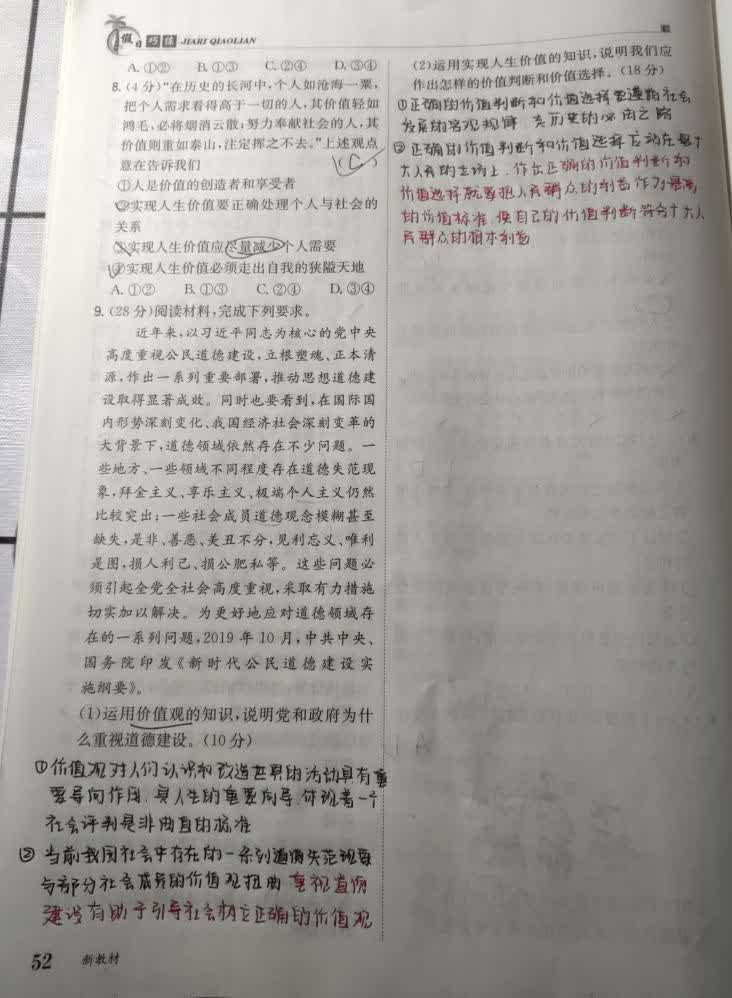 假日巧练 JIARI QIAOLIAN
A. ①② B. ①③ C. ②④ D. ③④
8. (4 分)“在历史的长河中,个人如沧海一粟,
把个人需求看得高于一切的人,其价值轻如
鸿毛,必将烟消云散;努力奉献社会的人,其
价值则重如泰山,注定挥之不去。”上述观点
意在告诉我们 (C)
①人是价值的创造者和享受者
②实现人生价值要正确处理个人与社会的
关系
③实现人生价值应尽量减少个人需要
④实现人生价值必须走出自我的狭隘天地
A. ①② B. ①③ C. ②④ D. ③④
9. (28 分)阅读材料,完成下列要求。
近年来,以习近平同志为核心的党中央
高度重视公民道德建设,立根塑魂、正本清
源,作出一系列重要部署,推动思想道德建
设取得显著成效。同时也要看到,在国际国
内形势深刻变化、我国经济社会深刻变革的
大背景下,道德领域依然存在不少问题。一
些地方、一些领域不同程度存在道德失范现
象,拜金主义、享乐主义、极端个人主义仍然
比较突出;一些社会成员道德观念模糊甚至
缺失,是非、善恶、美丑不分,见利忘义、唯利
是图,损人利己、损公肥私等。这些问题必
须引起全党全社会高度重视,采取有力措施
切实加以解决。为更好地应对道德领域存
在的一系列问题,2019 年 10 月,中共中央、
国务院印发《新时代公民道德建设实
施纲要》。
(1)运用价值观的知识,说明党和政府为什
么重视道德建设。(10 分)
①价值观对人们认识和改造世界的活动具有重
要导向作用,是人生的重要向导,体现着一个
社会评判是非曲直的标准
②当前我国社会中存在的一系列道德失范现象
与部分社会成员的价值观扭曲 重视道德
建设有助于引导社会树立正确的价值观
52 新教材
(2)运用实现人生价值的知识,说明我们应
作出怎样的价值判断和价值选择。(18 分)
①正确的价值判断和价值选择要遵循社会
发展的客观规律 历史的必由之路
②正确的价值判断和价值选择应站在最广
大人民的立场上,作出正确的价值判断和
价值选择就要把人民群众的利益作为最高
的价值标准 使自己的价值判断符合广大人
民群众的根本利益